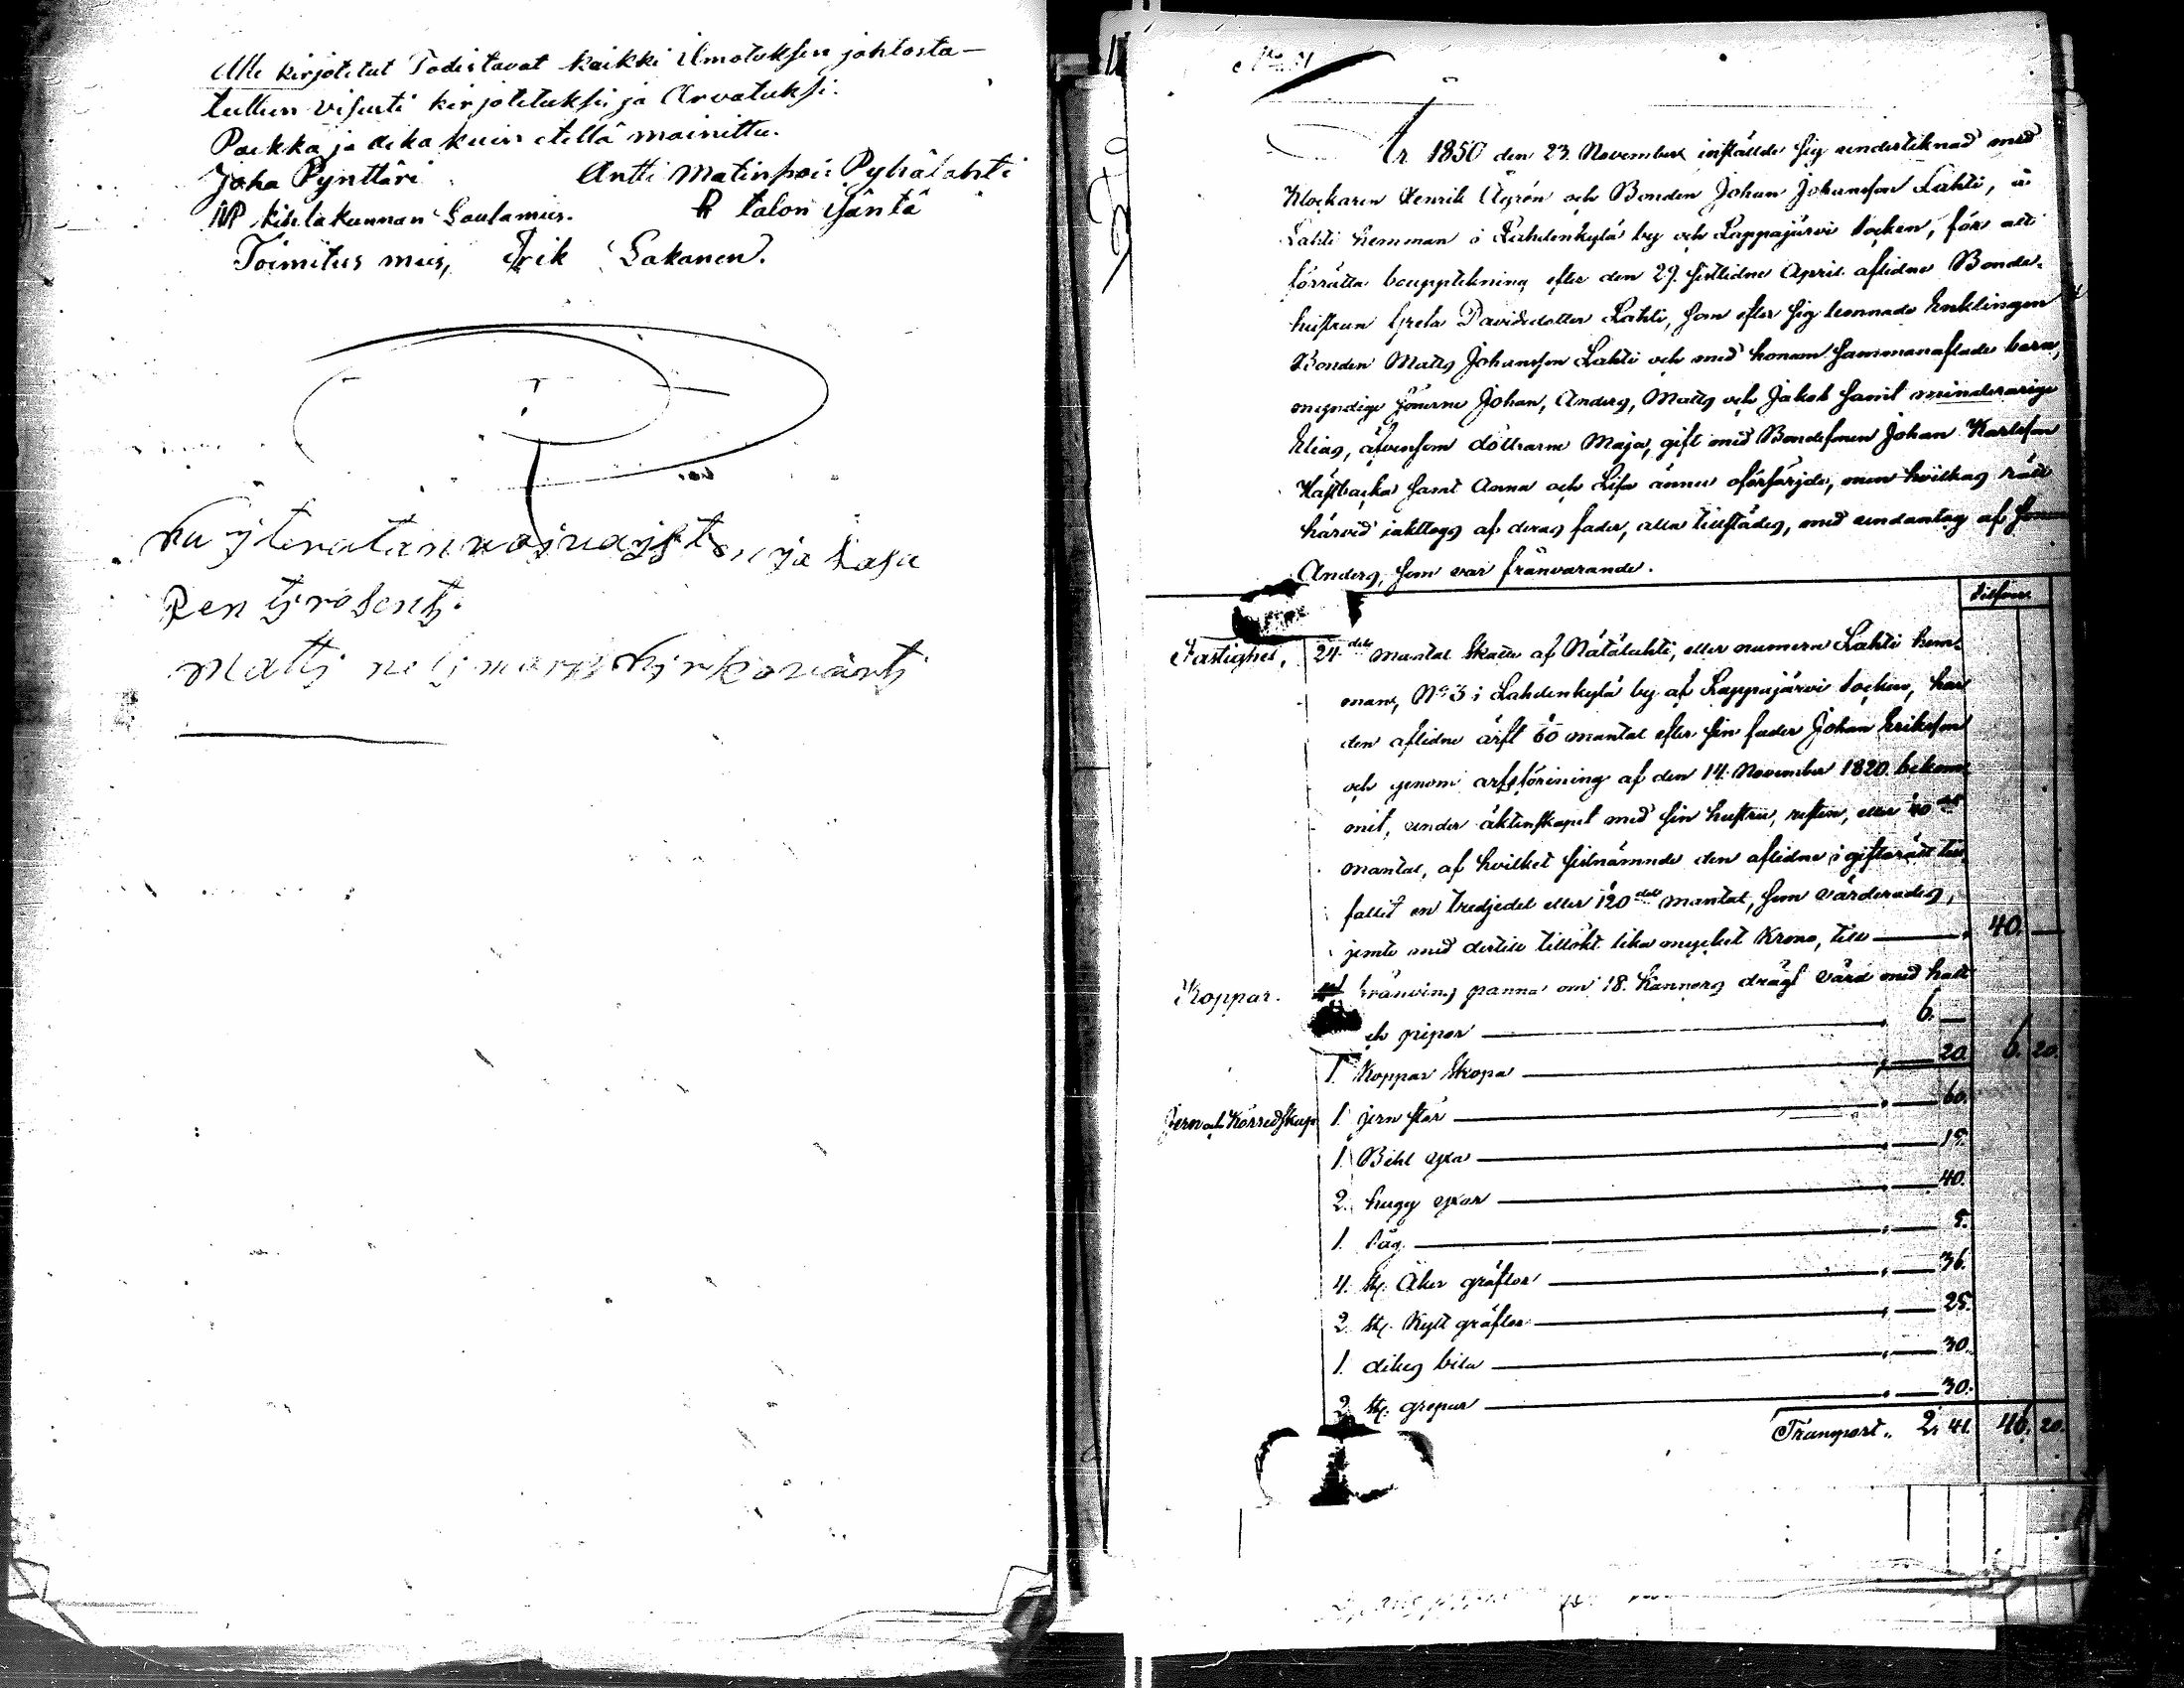 Alle kirjotetut Todistavat kaikki ilmotuksen johtosta-
tullun visusti kirjotetuksi ja Arvatuksi.
Paikka ja aika kuin etellä mainittu.
Joha Pynttäri
Antti Matinpoi: Pyhälahti
NP kihlakunnan Lautamies.
talon isäntä
Toimitus mies, Erik Lakanen.
ja
Matti
År 1850 den 23. November instälde sig undertecknad med
Klockaren Henrik Äyrén och Bonden Johan Johansson Lahti, å
Lahti hemman i Lahdenkylä by och Lappajärvi Socken, för att
förrätta bouppteckning efter den 29. sistlidne April aflidne Bonde-
hustrun Greta Davidsdotter Lahti, som efter sig lemnade Enklingen
Bonden Matts Johansson Lahti och med honom sammanaflade barn,
myndige sönerne Johan, Anders, Matts och Jakob samt minderårige
Elias, äfvensom döttrarne Maja, gift med Bondesonen Johan Karlsson
samt Anna och Lisa ännu oförsörjde, men hvilkas rätt
härvid iakttogs af deras fader, alla tillstädes, med undantag af
Anders, som var frånvarande.
Silfver.
Fastighet, 24 dels mantal Skatte af Nätälahti, eller numera Lahti hem-
man, No 3 i Lahdenkylä by af Lappajärvi Socken, har
den aflidne ärft 60 mantal efter sin fader Johan Eriksson
och genom arfsförening af den 14. November 1820 bekom-
mit, under äktenskapet med sin hustru, resten, eller 40 dels
mantal, af hvilket sistnämnde den aflidne i giftorätt till-
fallit en tredjedel eller 120 dels mantal, som värderades,
jemte med dertill tillökt lika mycket Krono, till 40. —
Koppar. 1 bränvins panna om 18. Kannors drägt värd med hatt
och pipor 6. —
1. Koppar Skopa — 20. 6. 20.
Jern och Körredskap 1. jern stör — 60.
1. Bihl yxa — 15.
2. hugg yxor — 40.
1. Såg. — 5.
4. st. Åker gräftor — 36.
2. st. Kytt gräftor — 25.
1. dikes bila — 30.
2. st. grepar — 30.
Transport „ 2. 41. 46. 20.